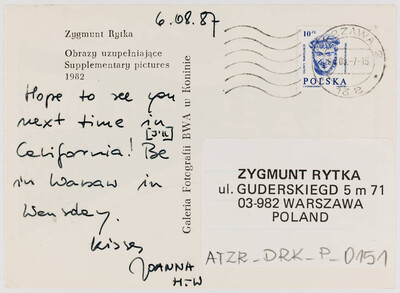 6.08.87
Zygmunt Rytka
Obrazy uzupełniające
Supplementary pictures
1982
Hope to see you
next time in
[I'll]
California! Be
in Warsaw in
Wensday.
Kisses
JOANNA
H-W
Galeria Fotografii BWA w Koninie
10 zł
POLSKA
ZYGMUNT RYTKA
ul. GUDERSKIEGD 5 m 71
03-982 WARSZAWA
POLAND
ATZR_DRK_P_0151